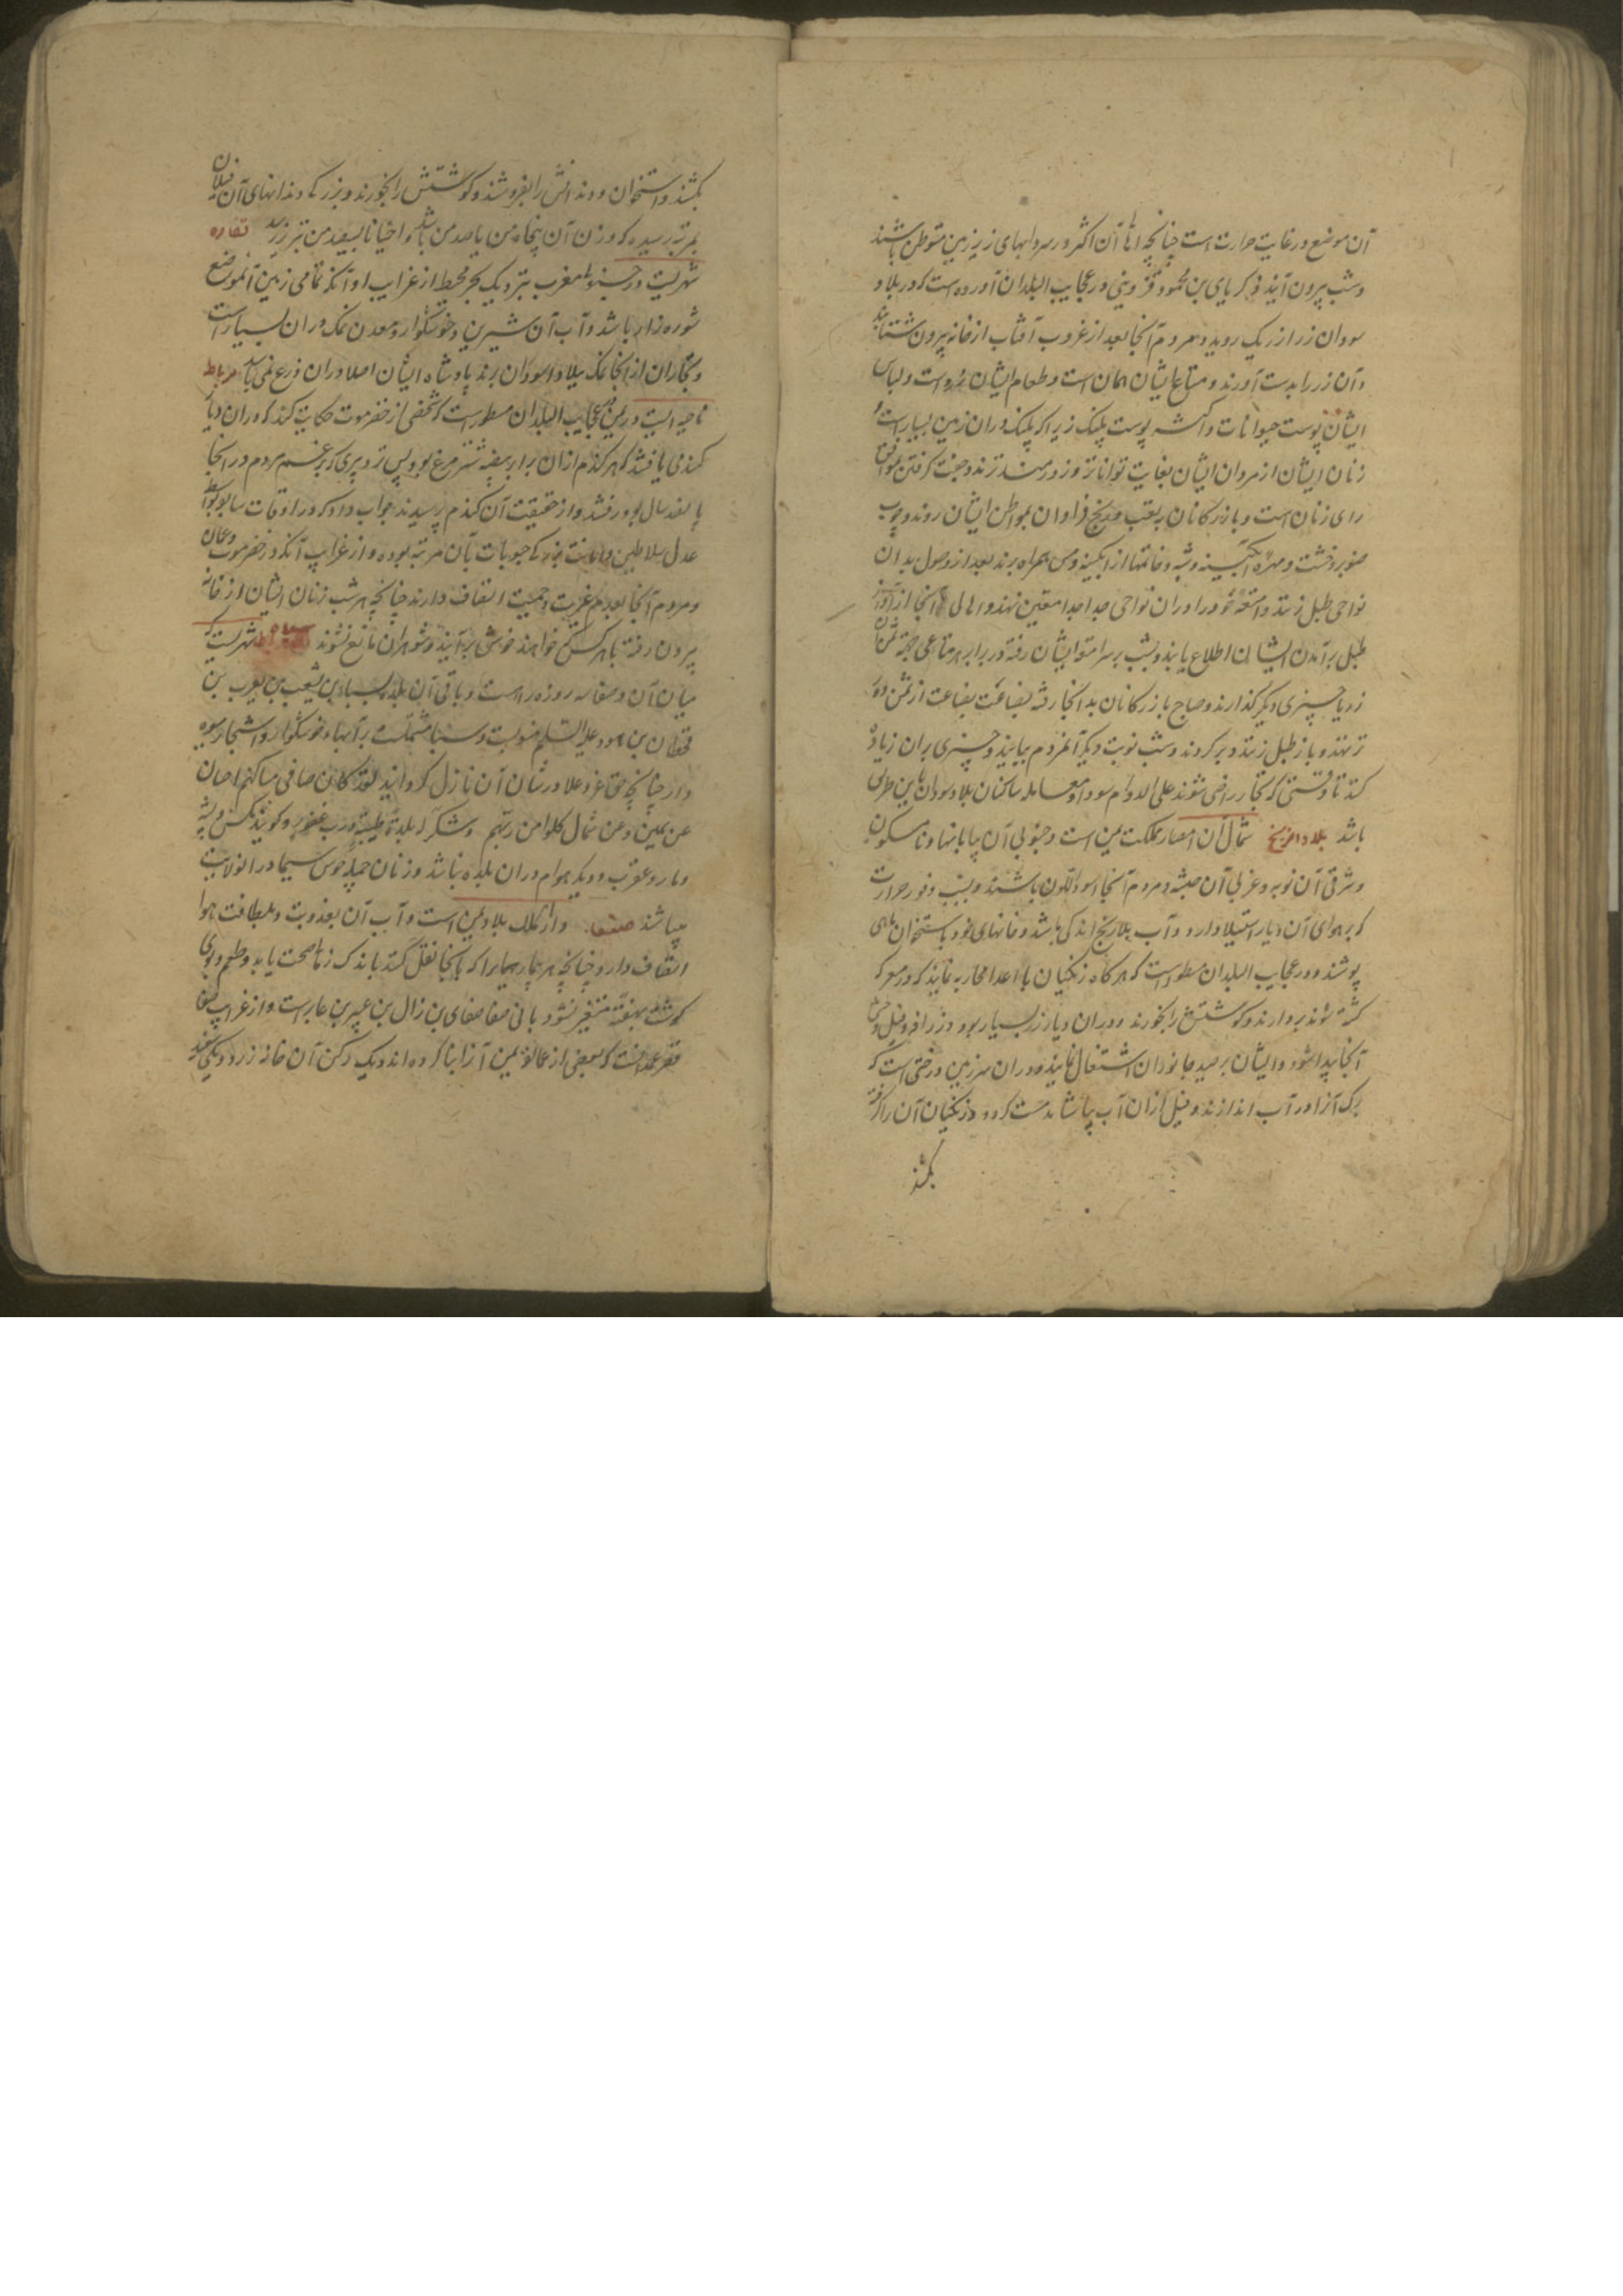 آن موضع در غایت حرارت است چنانچه اهل آن اکثر در سردابهای زیر زمین متوطن باشند
و شب بیرون آیند و زکریای بن محمود قزوینی در عجایب البلدان آورده است که در بلاد
سودان زر از ریک روید و مردم آنجا بعد از غروب آفتاب از خانه بیرون شتابند
و آن زر را بدست آورند و متاع ایشان همان است و طعام ایشان ذره است و لباس
ایشان پوست حیوانات و اکثر پوست پلنک زیرا که پلنک در ان زمین بسیار است و
زنان ایشان از مردان ایشان بغایت تواناتر و زورمندترند و جفت کرفتن بموافق
رای زنان است و بازرکانان به تعب و رنج فراوان بمواطن ایشان روند و چوب
صنوبر و خشت و مهره آبکینه و شبه و خاتمها از آبکینه و مس همراه برند بعد از وصول بدان
نواحی طبل زنند و امتعه خود را در ان نواحی جدا جدا معین نهند و اهالی آنجا از آواز
طبل بر آمدن ایشان اطلاع یابند و بشب بر سر امتعه ایشان رفته در برابر هر متاعی جهة ثمن
زر یا چیزی دیکر کذارند و صباح بازرکانان بدانجا رفته بضاعت بضاعت از ثمن دور
تر نهند و باز طبل زنند و بر کردند و شب نوبت دیکر آنمردم بیایند و چیزی بران زیاده
کنند تا وقتی که تجار راضی شوند علی الدوام سودا و معامله ساکنان بلاد سودان باین طریق
باشد بلاد الزنج شمال آن امصار مملکت یمن است و جنوبی آن بیابانها و نامسکون
و شرقی آن نوبه و غربی آن حبشه و مردم آنجا اسود اللون باشند و بسبب وفور حرارت
که بر هوای آن دیار استیلا دارد و آب بلاد زنج اندکی باشد و خانهای خود باستخوان ماهی
پوشند و در عجایب البلدان مسطور است که هر کاه زنکیان با اعدا محاربه نمایند که در معرکه
کشته شوند بردارند و کوشتش را بخورند و در ان دیار زر بسیار بود و زرافه و فیل وحش
آنجا پیدا شود و ایشان بر صید جانوران اشتغال نمایند و در ان سرزمین درختی است که
برک آنرا در آب اندازند و فیل ازان آب بیاشامد مست کردد و زنکیان آن را کرفته
بکشند
بکشند و استخوان و دندانش را بفروشند و کوشتش را بخورند و بزرکی دندانهای آن فیلان
بمرتبه رسیده که وزن آن پنجاه من یا صد من باشد و احیانا بسیصد من تبریز رسد تغاره
شهریست در جنوب مغرب بنزدیک بحر محیط از غرایب او آنکه تمامی زمین آنموضع
شوره زار باشد و آب آن شیرین و خوشکوار و معدن نمک در ان بسیار است
و تجاران از آنجا نمک ببلاد سودان برند پادشاه ایشان اصلا در ان زرع نمی باشد مرباط
ناحیه ایست در یمن در عجایب البلدان مسطور است که شخصی از حضرموت حکایت کند که در ان دیار
کندمی یافتند که هر کندم ازان برابر بیضه شتر مرغ بود پس نزد پیری که بر غم مردم در آنجا
پانصد سال بود رفتند و از حقیقت آن کندم پرسیدند جواب داد که در اوقات سابق بواسطه
عدل سلاطین و امانت بزرکی حبوبات بآن مرتبه بوده و از غرایب آنکه در حضرموت و عمان
و مردم آنجا بعدم غیرت و حمیت اتصاف دارند چنانچه هر شب زنان ایشان از خانه
بیرون رفته با هر کس که خواهند خوش برآیند و شوهران مانع نشوند شهریست که
میان آن و صنعا سه روزه راه است و بانی آن بلده سبا بن یشحب بن یعرب بن
قحطان بن هود علیه السلم منسوبست و سبا مشتملست بر آبهای خوشکوار و اشجار میوه
دار چنانچه حق عز و علا در شان آن نازل کردانید لقد کان لسبا فی مساکنهم ایة جنتان
عن یمین و عن شمال کلوا من رزق ربکم و اشکروا له بلدة طیبة و رب غفور و کویند مکس و پشه
و مار و عقرب و دیکر هوام در ان بلده نباشد و زنان جمیله خوش سیما در انولایت
میباشند صنعا و از ملک بلاد یمن است و آب آن بعذوبت و بلطافت هوا
اتصاف دارد چنانچه هر بیمار بیمار را که بآنجا نقل کنند باندک زمان صحت یابد و طعم و بوی
کوشت بهفته متغیر نشود بانی صنعا صنعای بن زال بن عبیر بن عابر است و از غرایب صنعا
قصر غمدانست که بعضی از عمالقه یمن آنرا بنا کرده اند و یک رکن آن خانه زرد و یکی سفید